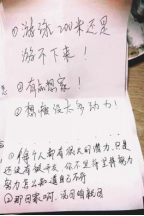 ①游泳200米还是
游不下来！
②有点想家！
③想难没太多动力！
①每个人都有很大的潜力，只是
还没有被开发，你不坚持坚持努力
努力怎么知道自己不行
②那回家呀，